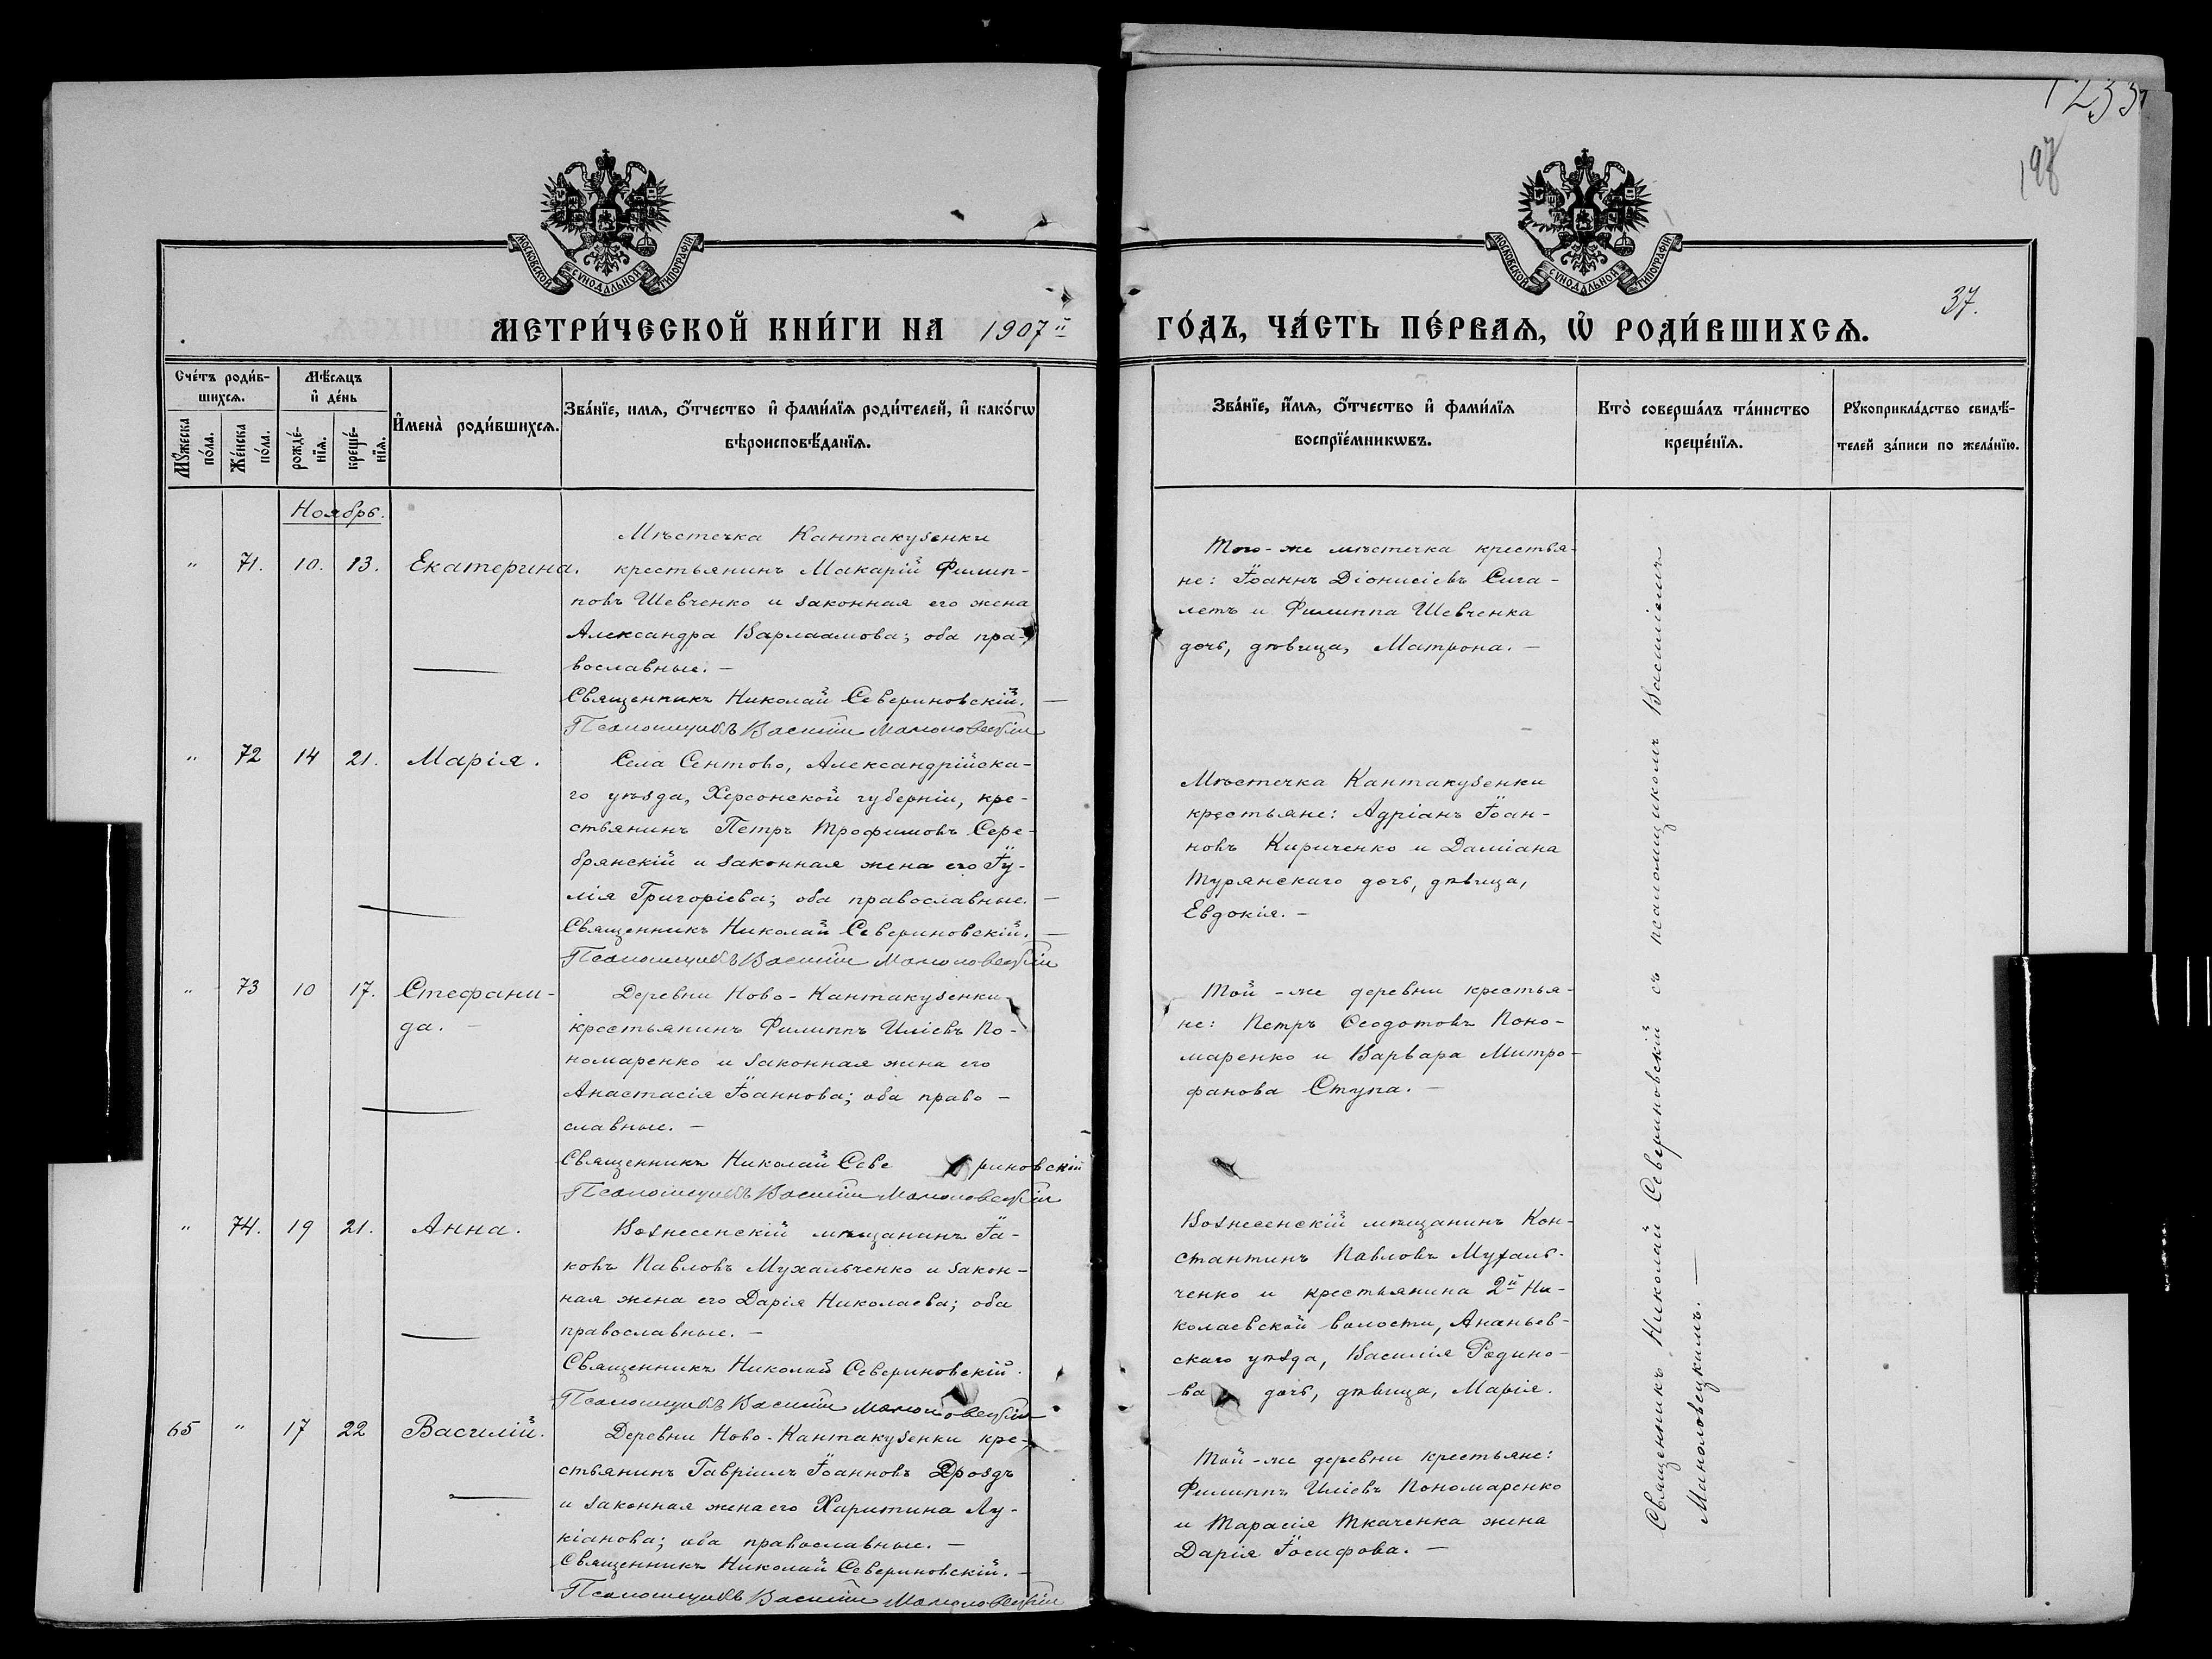 1233
198
37.
МОСКОВСКОЙ СУНОДАЛЬНОЙ ТИПОГРАФІИ
МОСКОВСКОЙ СУНОДАЛЬНОЙ ТИПОГРАФІИ
МЕТРИ́ЧЕСКОЙ КНИ́ГИ НА 1907й
ГО́ДЪ, ЧА́СТЬ ПЕ́РВАѦ, Ѡ҆ РОДИ́ВШИХСѦ.
Сче́тъ роди́в-
шихсѧ.
Мꙋ́жеска по́ла.
Же́нска по́ла.
Мѣ́сѧцъ
и҆ де́нь
рожде́-
нїѧ.
креще́-
нїѧ.
И҆мена̀ роди́вшихсѧ.
Зва́нїе, имѧ, ѻ҆́тчество и҆ фами́лїѧ роди́телей, и҆ како́гѡ
вѣроисповѣ́данїѧ.
Зва́нїе, и҆́мѧ, ѻ҆́тчество и҆ фами́лїѧ
воспрїе́мникѡвъ.
Кто̀ соверша́лъ та́инство
креще́нїѧ.
Рꙋкоприкла́дство свидѣ́-
телей за́писи по жела́нїю.
Ноябрь.
" 71. 10. 13. Екатерина.
Мѣстечка Кантакузенки
крестьянинъ Макарій Филип-
повъ Шевченко и законная его жена
Александра Варлаамова; оба пра-
вославные. —
Священникъ Николай Севериновскій. —
Псаломщикъ Василій Манолове​цкій
Того-же мѣстечка крестья-
не: Іоаннъ Діонисіевъ Сига-
летъ и Филиппа Шевченка
дочь, дѣвица, Матрона. —
" 72 14 21. Марія.
Села Сентово, Александрійска-
го уѣзда, Херсонской губерніи, кре-
стьянинъ Петръ Трофимовъ Сере-
брянскій и законная жена его Іу-
лія Григоріева; оба православные. —
Священникъ Николай Севериновскій. —
Псаломщикъ Василій Маноловецкій
Мѣстечка Кантакузенки
крестьяне: Адріанъ Іоан-
новъ Кириченко и Даміана
Турянскаго дочь, дѣвица,
Евдокія. —
" 73 10 17. Стефани-
да. —
Деревни Ново-Кантакузенки
крестьянинъ Филиппъ Иліевъ По-
номаренко и законная жена его
Анастасія Іоаннова; оба право-
славные. —
Священникъ Николай Севе риновскій
Псаломщикъ Василій Маноловецкій
Той-же деревни крестья-
не: Петръ Ѳеодотовъ Поно-
маренко и Варвара Митро-
фанова Ступа. —
" 74. 19 21. Анна.
Вознесенскій мѣщанинъ Іа-
ковъ Павловъ Мухальченко и закон-
ная жена его Дарія Николаева; оба
православные. —
Священникъ Николай Севериновскій.
Псаломщикъ Василій Маноловецкій
Вознесенскій мѣщанинъ Кон-
стантинъ Павловъ Мухаль-
ченко и крестьянина 2й Ни-
колаевской волости, Ананьев-
скаго уѣзда, Василія Родино-
ва дочь, дѣвица, Марія.
65 " 17 22 Василій.
Деревни Ново-Кантакузенки кре-
стьянинъ Гавріилъ Іоанновъ Дроздъ
и законная жена его Харитина Лу-
кіанова; оба православные. —
Священникъ Николай Севериновскій. —
Псаломщикъ Василій Маноловецкій
Той-же деревни крестьяне:
Филиппъ Иліевъ Пономаренко
и Тарасія Ткаченка жена
Дарія Іосифова. —
Священникъ Николай Севериновскій съ псаломщикомъ Василіемъ
Маноловецкимъ. —